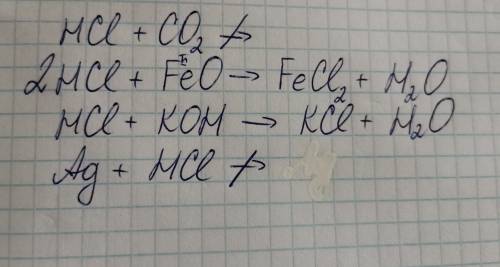 HCl + CO₂ ↛
2HCl + FeO → FeCl₂ + H₂O
HCl + KOH → KCl + H₂O
Ag + HCl ↛